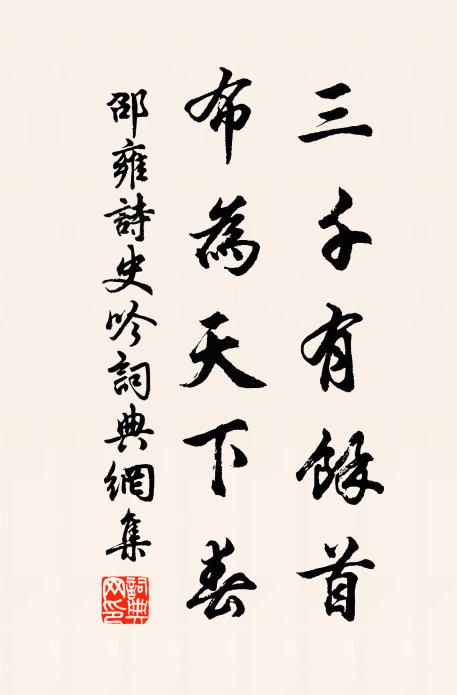 三千有餘首
布為天下春
邵雍詩史吟詞典網集
詞典網印